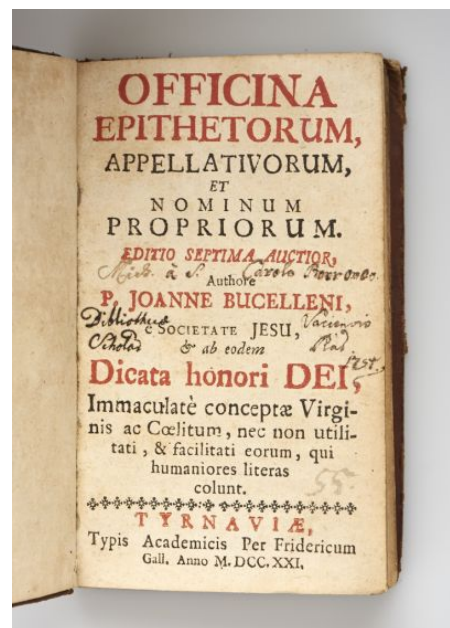 OFFICINA
EPITHETORUM,
APPELLATIVORUM,
ET
NOMINUM
PROPRIORUM.
EDITIO SEPTIMA AUCTIOR,
Mich. à S. Carolo Borromæo.
Authore
P. JOANNE BUCELLENI,
Bibliothecæ Vaciensis
è SOCIETATE JESU,
Scholar
& ab eodem
1757.
Dicata honori DEI,
Immaculatè conceptæ Virgi-
nis ac Cœlitum, nec non utili-
tati, & facilitati eorum, qui
humaniores literas
colunt.
55.
TYRNAVIÆ,
Typis Academicis Per Fridericum
Gall. Anno M. DCC. XXI.